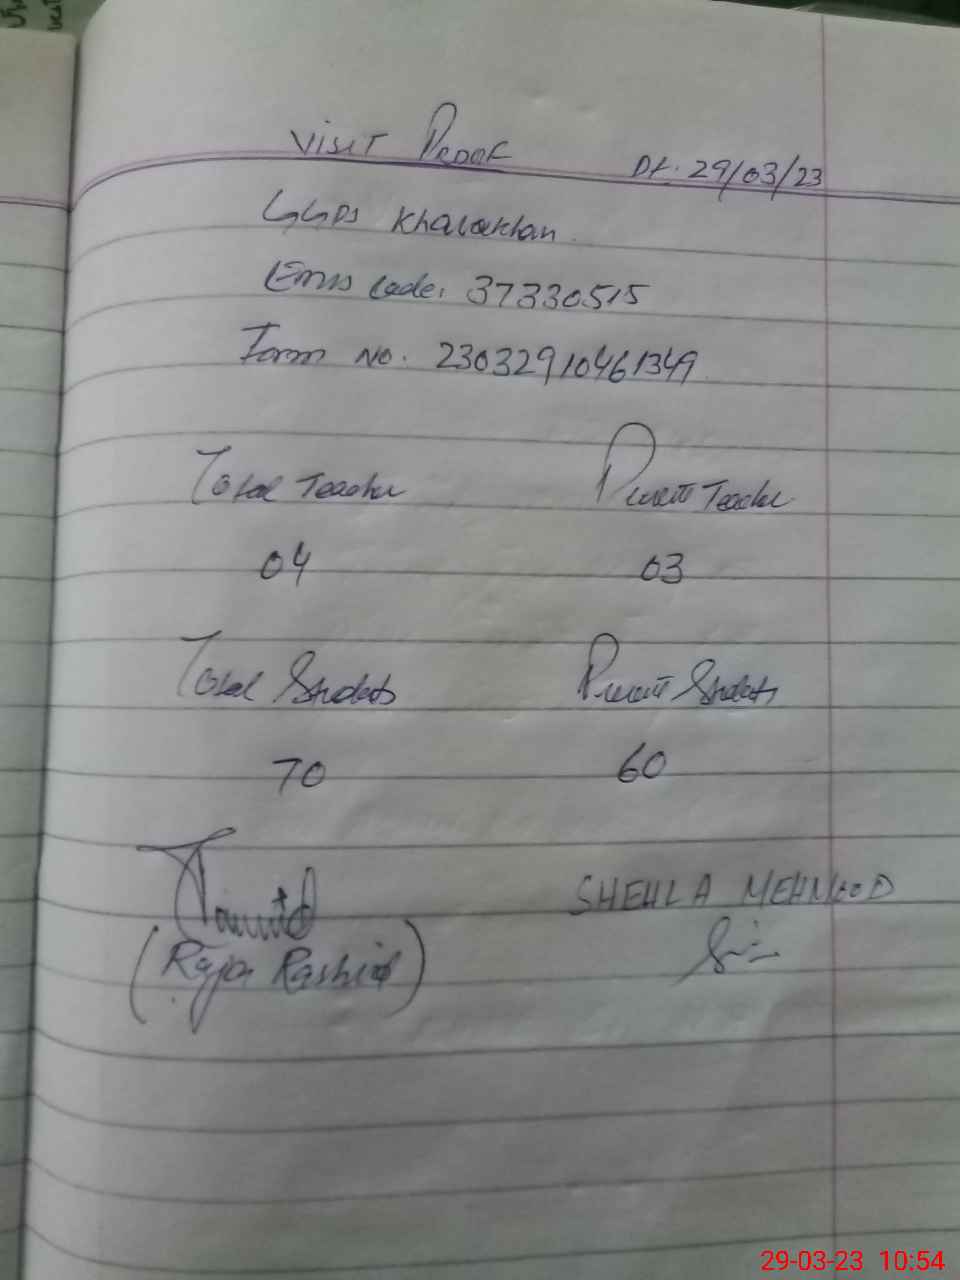 Visit Proof Dt: 29/03/23
GGPS Khalakhan
Emis Code: 37330515
Form No. 23032910461349
Total Teacher Present Teacher
04 03
Total Students Present Students
70 60
SHEHLA MEHMOOD
(Raja Rashid)
29-03-23 10:54